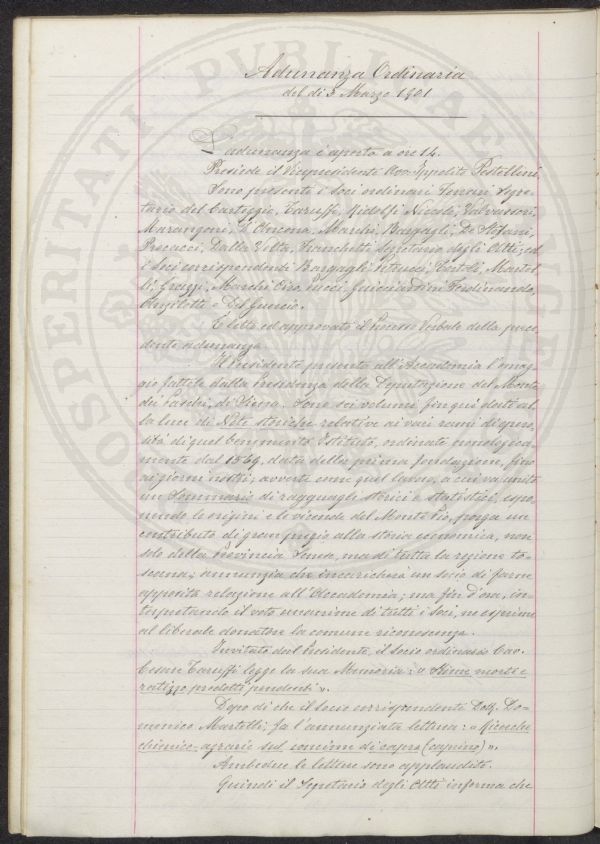 Adunanza Ordinaria
del dì 3 Marzo 1901
L'adunanza è aperta a ore 14.
Presiede il Vicepresidente Avv. Ippolito Pestellini.
Sono presenti i Soci ordinari Ferrari Segre-
tario del Carteggio, Taruffi, Ridolfi Niccolò, Valvassori,
Marangoni, D'Ancona, Marchi, Bargagli, De Stefani,
Procacci, Dalla Volta, Franchetti Segretario degli Atti; ed
i Soci corrispondenti Bargagli Petrucci, Martel-
li, Grazzi, Marchi Pucci, Guicciardini Ferdinando,
Angelotti e Del Guercio.
È letto ed approvato il Processo Verbale della prece-
dente adunanza.
Il Presidente presenta all'Accademia l'omag-
gio fattole dalla Presidenza della Deputazione del Monte
dei Paschi, di Siena. Sono sei volumi, fin qui dati al-
la luce di Note storiche relative ai vari rami di opero-
sità di quel benemerito Istituto, ordinate cronologica-
mente dal 1569, data della prima fondazione, fino
ai giorni nostri; avverte come quel lavoro, a cui va unito
un Sommario di ragguagli storici e statistici, espo-
nendo le origini e le vicende del Monte Pio, porga un
contributo di gran pregio alla storia economica, non
solo della Provincia Senese, ma di tutta la regione to-
scana; annunzia che incaricherà un socio di farne
apposita relazione all'Accademia; ma fin d'ora, in-
terpretando il voto unanime di tutti i Soci, ne esprime
al liberale donatore la comune riconoscenza.
Invitato dal Presidente, il socio ordinario Cav.
Cesare Taruffi legge la sua Memoria: « Stime morte e
 prodotti pendenti ».
Dopo di che il socio corrispondente Dott. Do-
menico Martelli, fa l'annunziata lettura: « Ricerche
chimico-agrarie sul concime di capra (caprino) ».
Ambedue le letture sono applaudite.
Quindi il Segretario degli Atti informa che